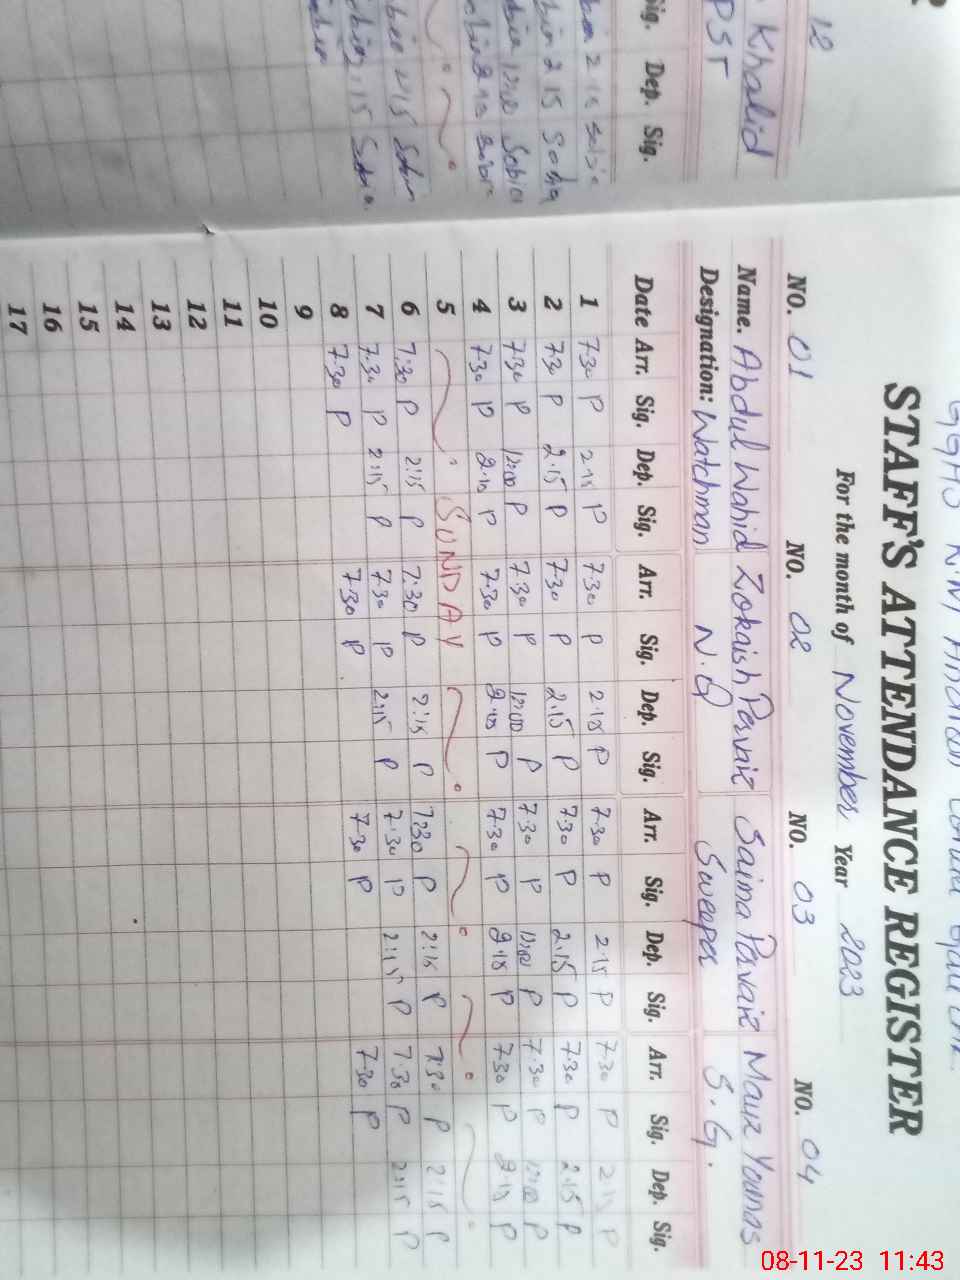 STAFF'S ATTENDANCE REGISTER
For the month of November Year 2023
NO. 01 NO. 02 NO. 03 NO. 04
Name. Abdul Wahid Zokaish Pervaiz Saima Pervaiz
Designation: Watchman N.Q Sweeper S.G.
Date Arr. Sig. Dep. Sig. Arr. Sig. Dep. Sig. Arr. Sig. Dep. Sig. Arr. Sig. Dep. Sig.
1 7:30 P 2:15 P 7:30 P 2:15 P 7:30 P 2:15 P 7:30 P P
2 7:30 P 2:15 P 7:30 P 2:15 P 7:30 P 2:15 P 7:30 P 2:15 P
3 7:30 P 12:00 P 7:30 P 12:00 P 7:30 P 12:00 P 7:30 P 12:00 P
4 7:30 P 2:15 P 7:30 P 2:15 P 7:30 P 2:15 P 7:30 P 2:15 P
5 SUNDAY
6 7:30 P 2:15 P 7:30 P 2:15 P 7:30 P 2:15 P 7:30 P 2:15 P
7 7:30 P 2:15 P 7:30 P 2:15 P 7:30 P 2:15 P 7:30 P 2:15 P
8 7:30 P 7:30 P 7:30 P 7:30 P
9
10
11
12
13
14
15
16
17
12
Khalid
PST
Sig. Dep. Sig.
08-11-23 11:43